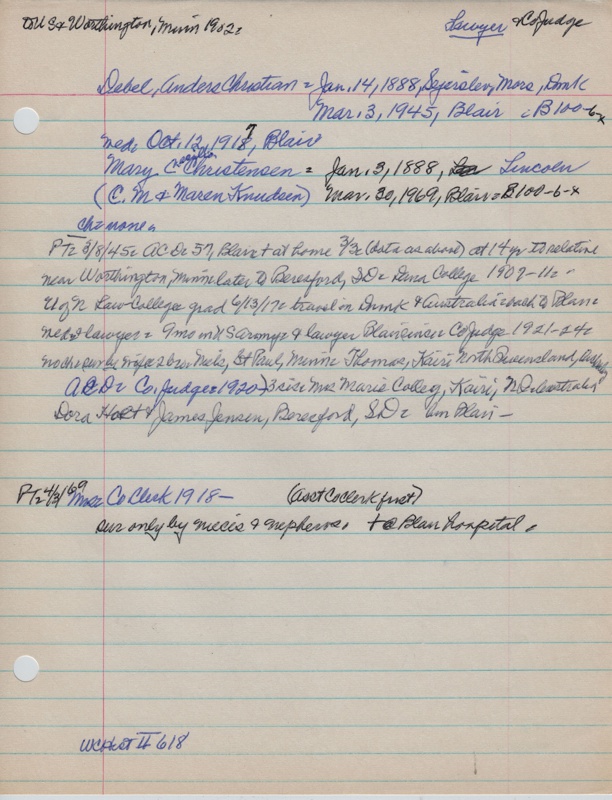 to US & Worthington, Minn 1902=
Lawyer & Co Judge
Debel, Anders Christian = Jan. 14, 1888, Sejerslev, Mors, Dmk
Mar. 3, 1945, Blair = B100-6-x
med= Oct. 12, 1918, 7 Blair=
Mary C Christensen = Jan. 3, 1888, Lincoln
(C. M & Maren Knudsen) Mar. 30, 1969, Blair = B100-6-x
ch= none =
PT= 3/8/45= AC D= 57, Blair + at home 3/3= (data as above) at 14 yr to relative
near Worthington, Minn later to Beresford, SD= Dana College 1907-11= =
U of N Law College grad 6/13/17= travel in Dmk & Australia= back to Blair=
med & lawyer= 9 mo in US army= & lawyer Blair since= Co Judge 1921-24=
no ch= sur by wife= 2 bro. Nels, St Paul, Minn= Thomas, Kairi North Queensland, Australia
A C D= Co. Judge= 1920-) 3 sis= Mrs Marie Colley, Kairi, N Q Australia
Dora Holt & James Jensen, Beresford, SD= bur Blair -
PT= 4/3/69 Mrs= Co Clerk 1918- (Asst Co Clerk first)
sur only by nieces & nephews. + @ Blair hospital.
WCHist II 618